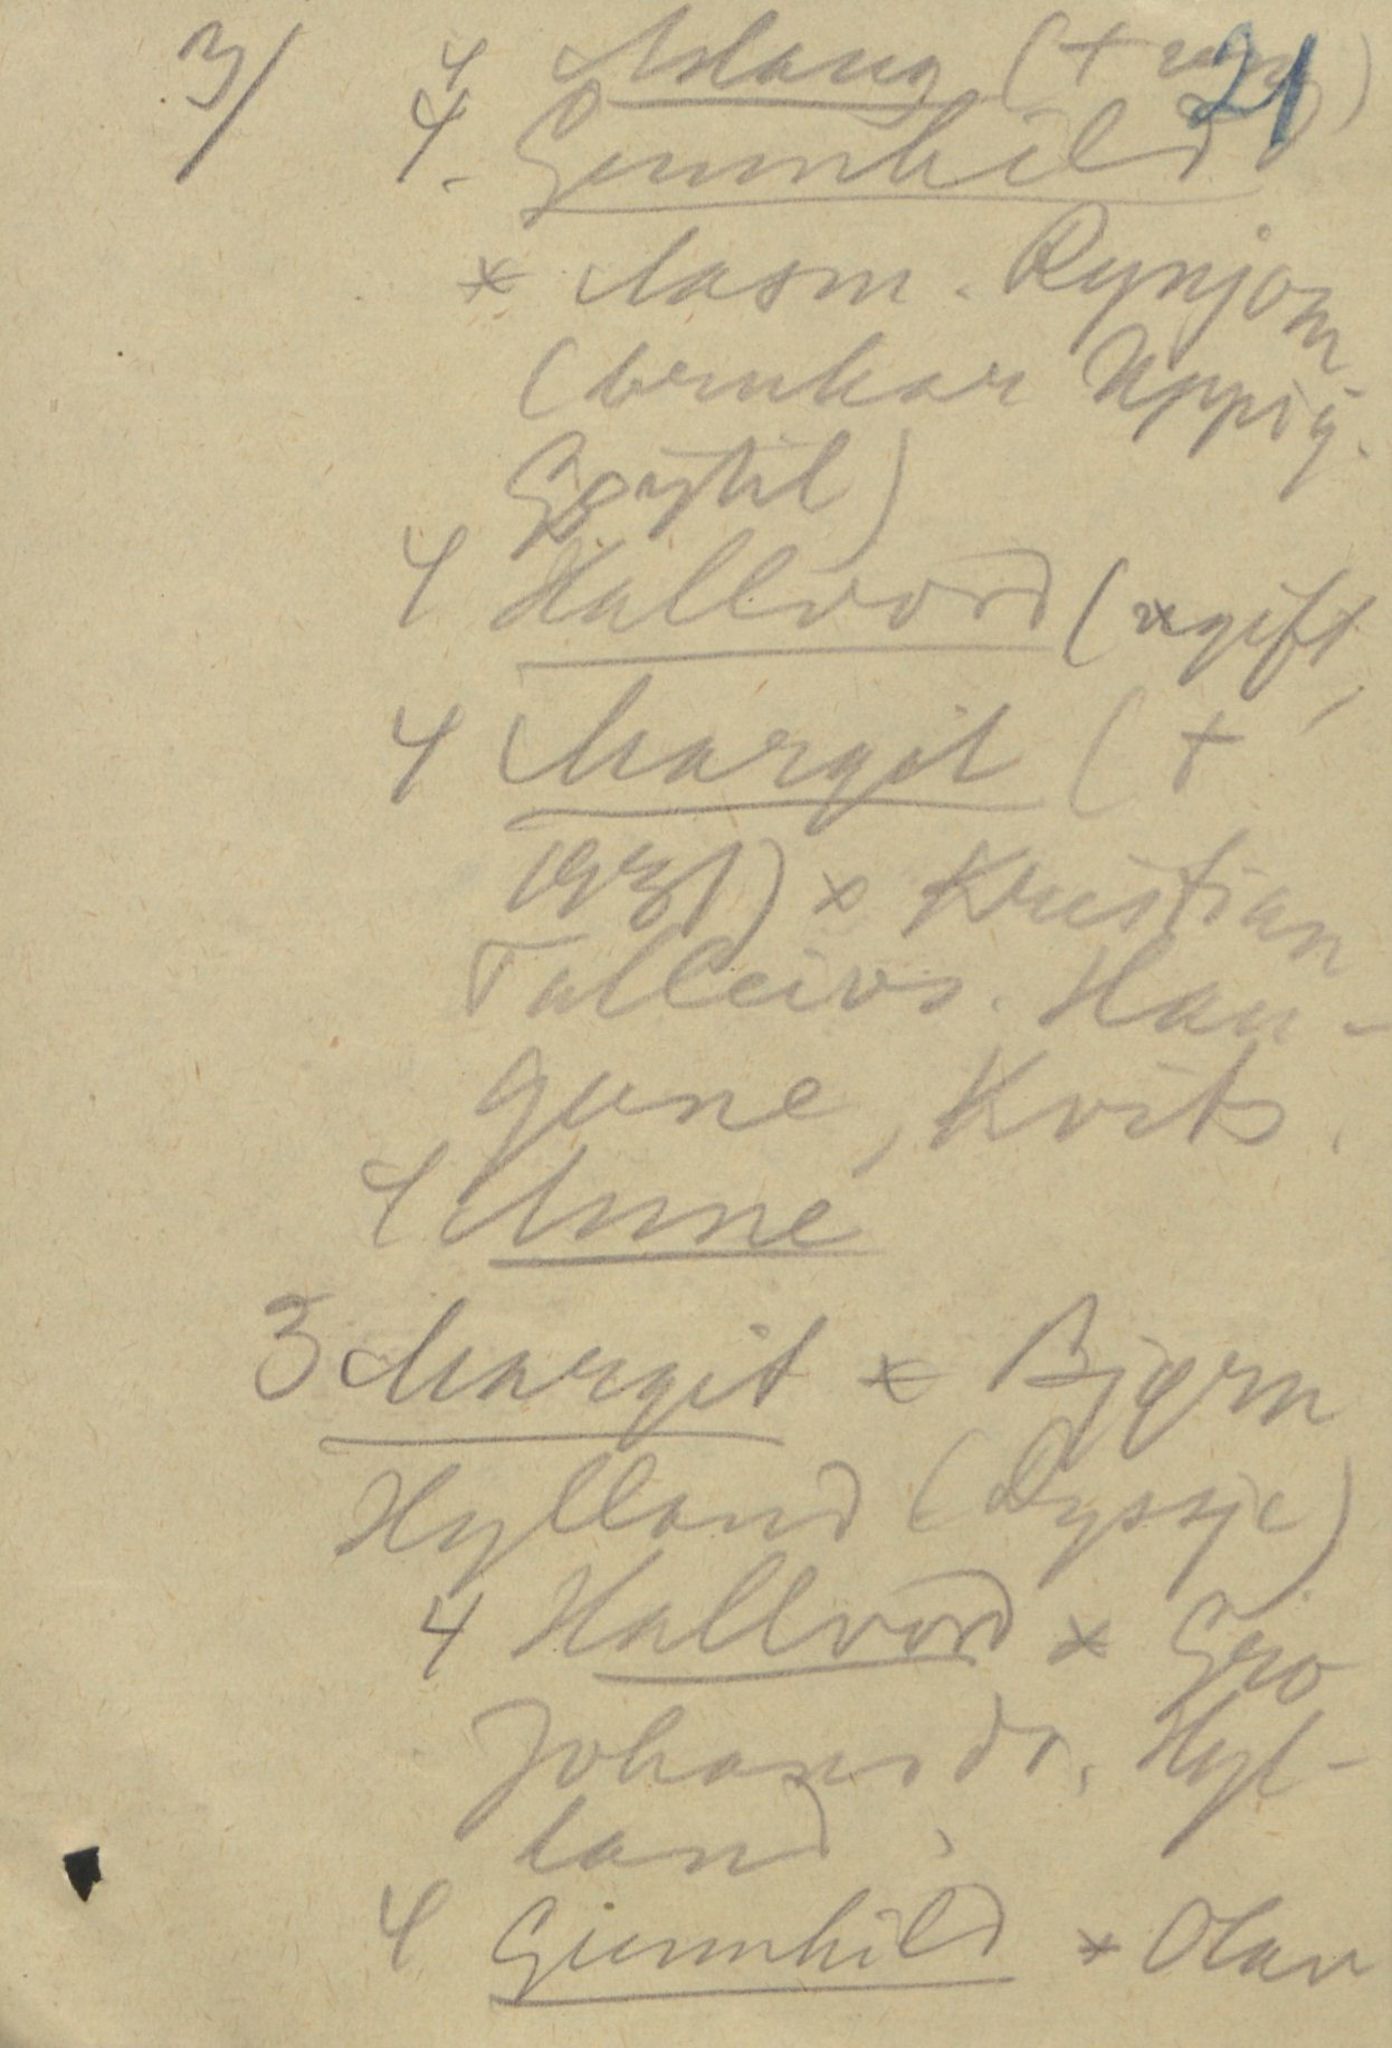 3/ 4 Aslaug (+ ung) 21
4. Gunnhild
x Aasm. Rynjom
(brukar Uppig.
Gjøytil)
4 Hallvord (ugift,
4 Margit (+
1931) x Kristian
Talleivs. Hau-
gane, Kvits.
4 Anne
3 Margit x Bjørn
Hylland (Dyssje)
4 Hallvord x Gro
Johansdr. Hyl-
land.
4 Gunnhild x Olav